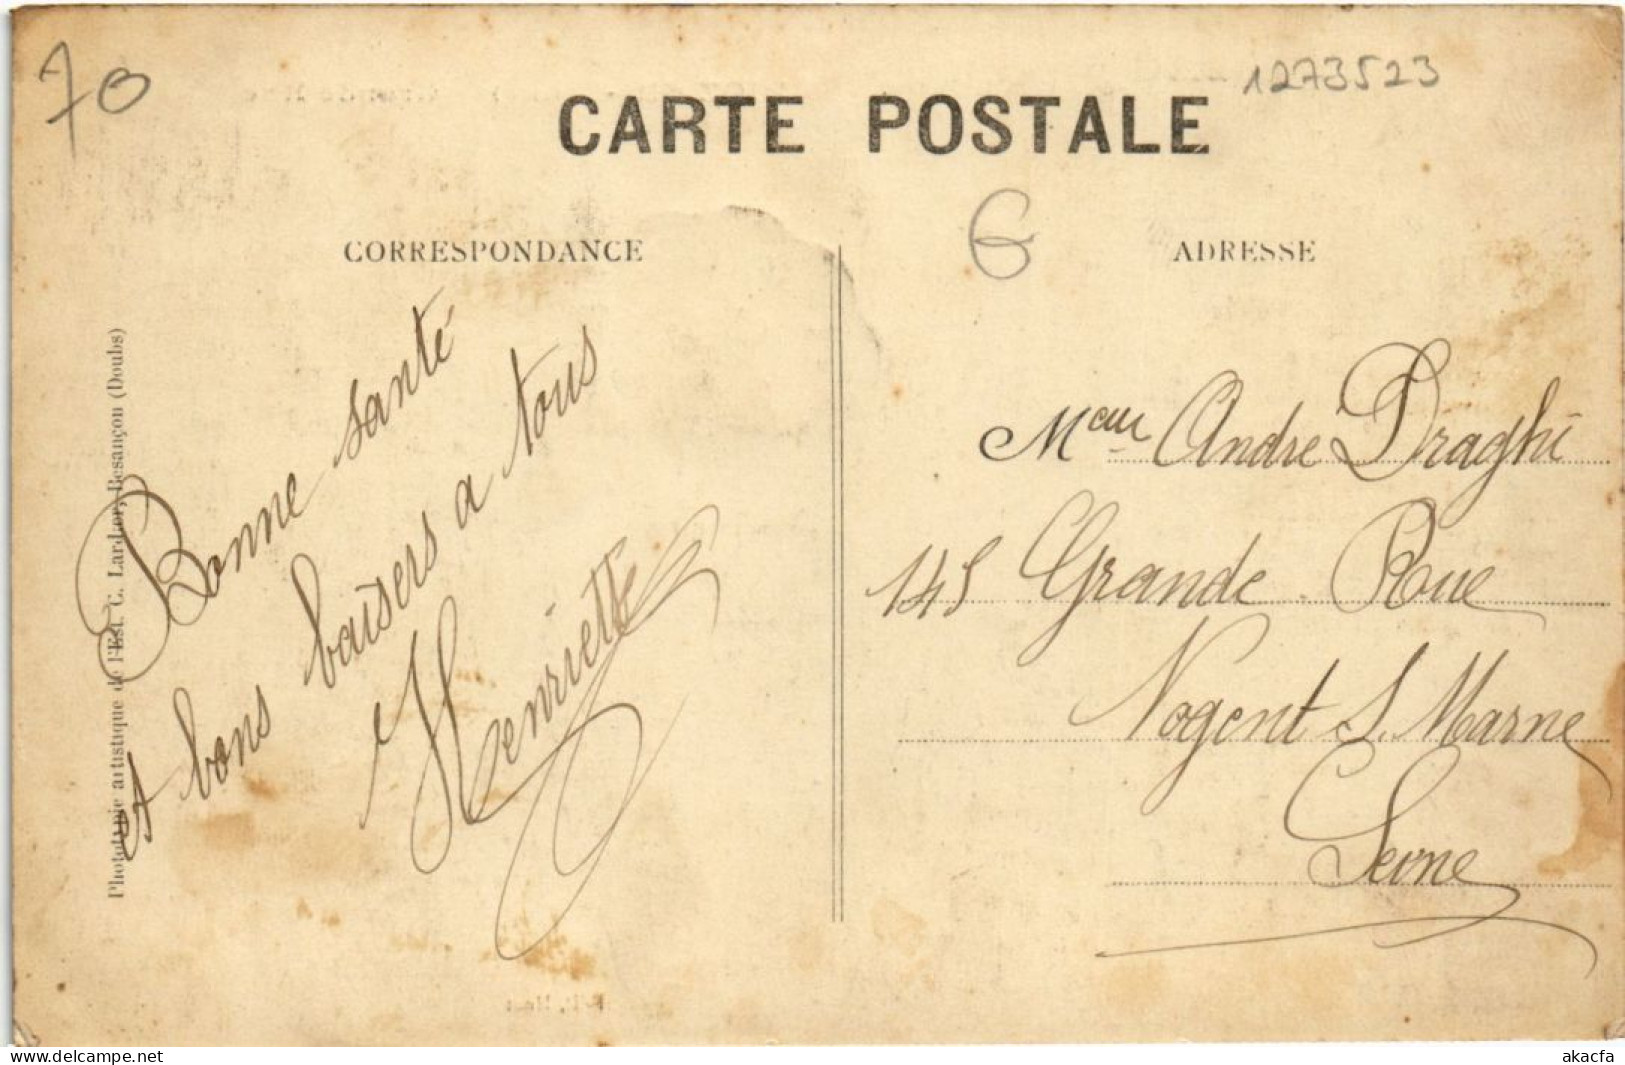 70
1273523
CARTE POSTALE
G
CORRESPONDANCE
ADRESSE
Bonne santé
et bons baisers a tous
Henriette
Phototypie artistique de l'Est C. Lardier, Besançon (Doubs)
Andre Draghi
145 Grande Rue
Nogent S. Marne
Seine
akacfa